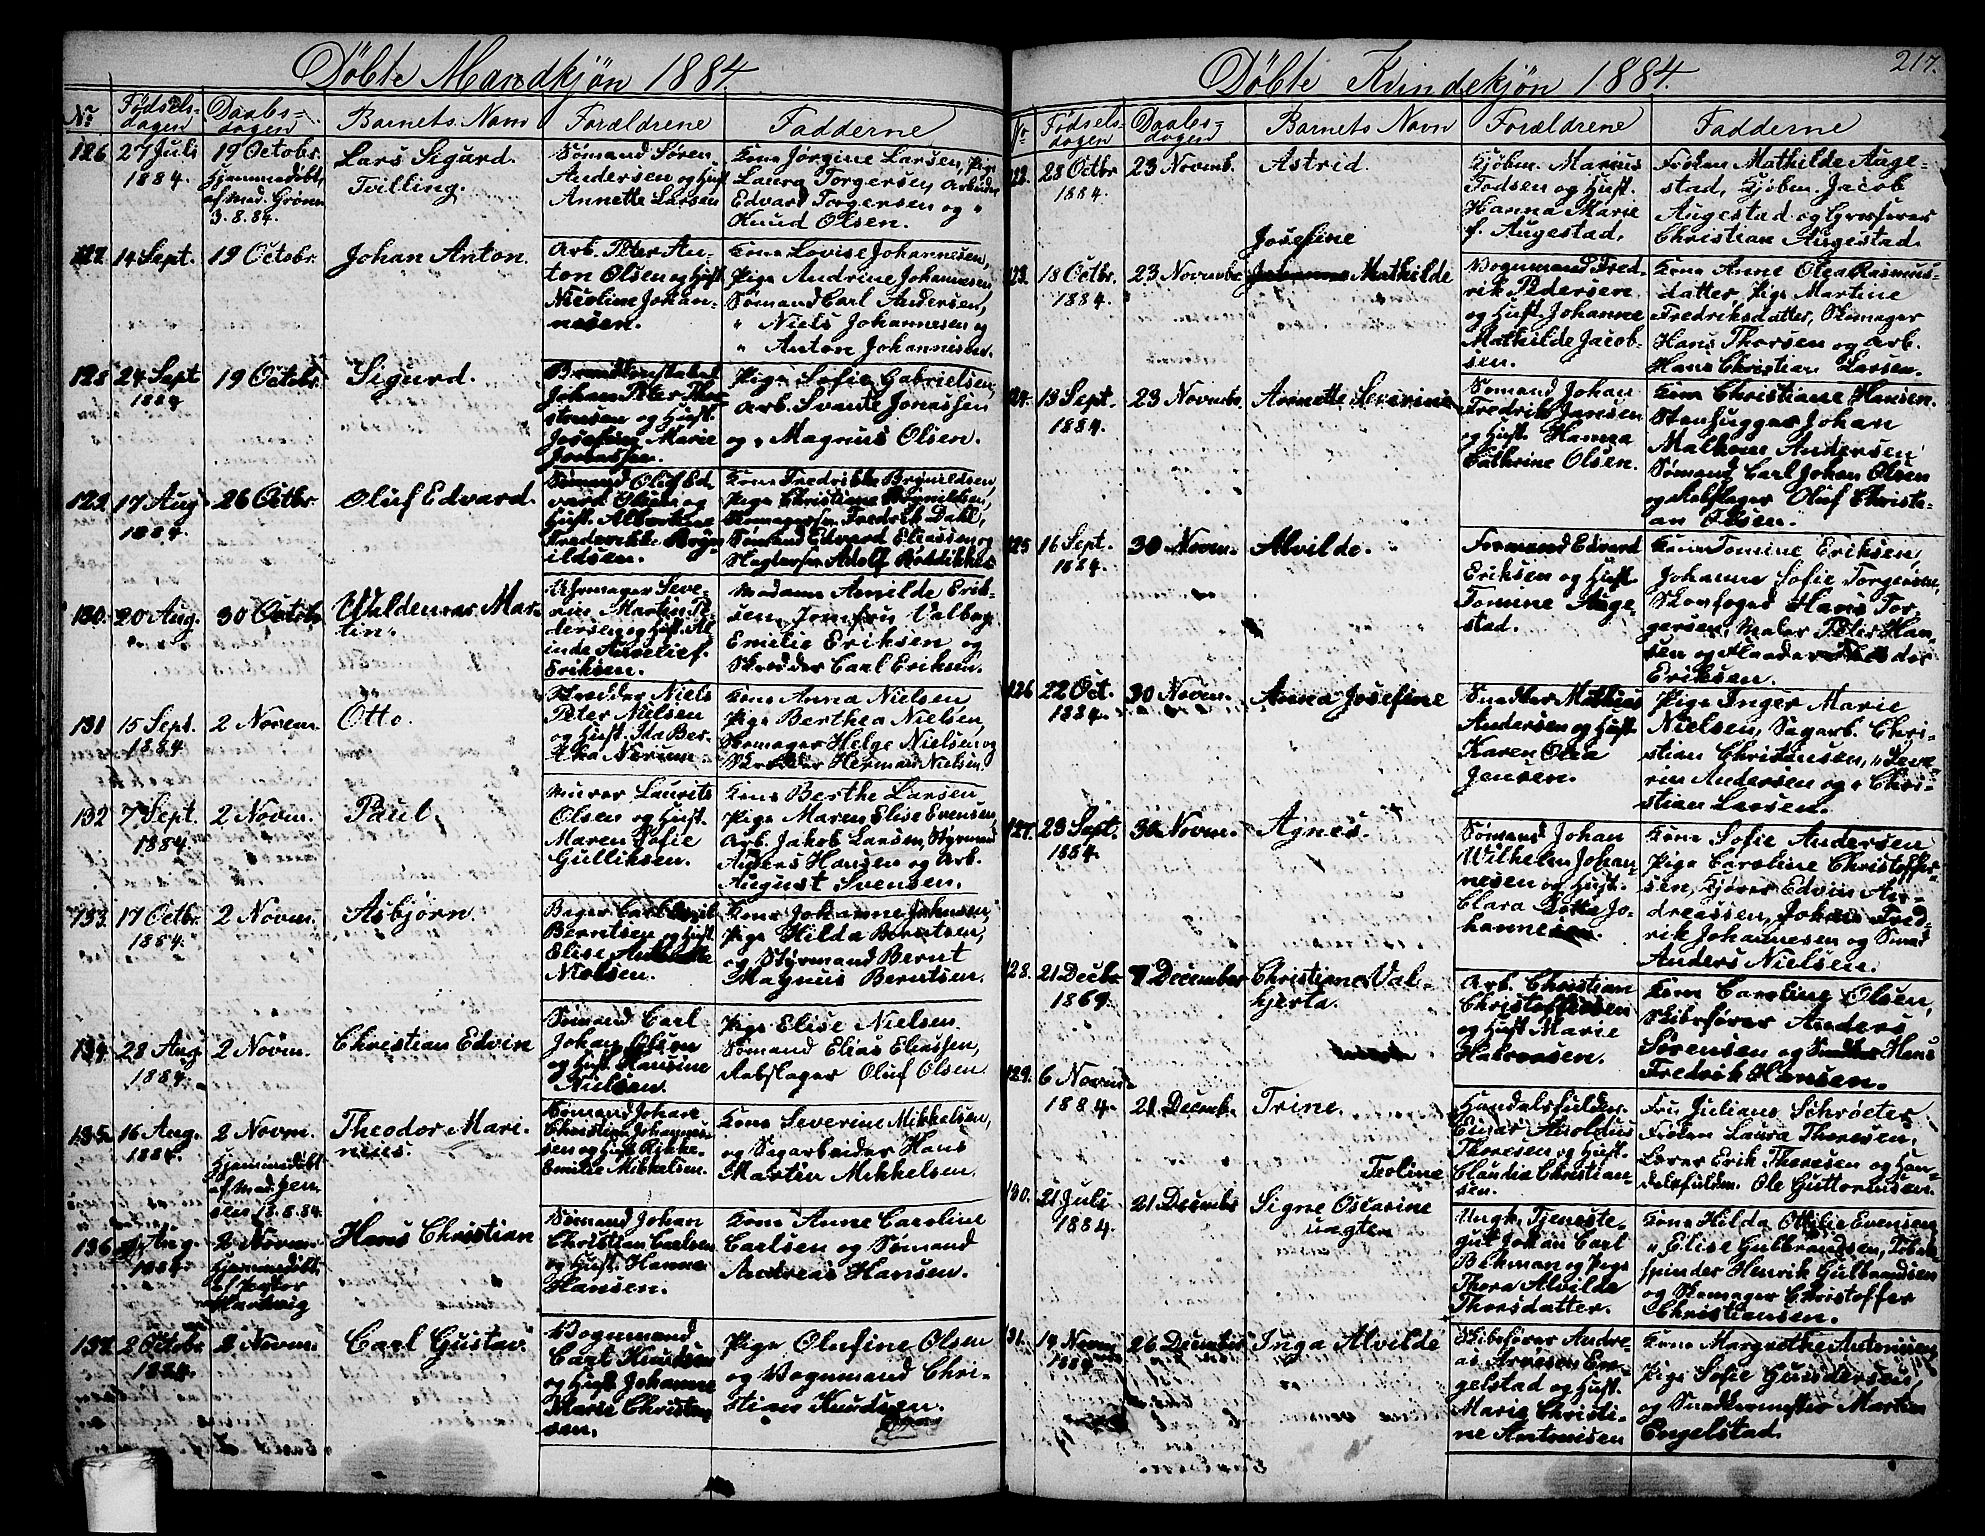 Döbte Mandkjøn 1884.
No
Fødsels-
dagen
Daabs-
dagen
Barnets Navn
Forældrene
Fadderne
126. 27 Juli
1884.
19 Octobr.
Hjemmedöbt
af Mad. Grönn
3.8.84.
Lars Sigurd.
Tvilling.
Sømand Søren
Andersen og Hust.
Annette Larsen
Kone Jørgine Larsen, Pige
Laura Torgersen, Arbeider
Edvard Torgersen og "
Knud Olsen.
127. 14 Sept.
19 Octobr.
Johan Anton.
Arb. Peter An-
ton Olsen og Hust.
Nicoline Johan-
nesen.
Kone Lovise Johannesen,
Pige Andrine Johannesen
Sømand Carl Andersen,
" Niels Johannesen og
" Anton Johannesen.
128 24 Sept
1884
19 Octobr.
Sigurd.
Johan Peter Tho-
stensen og Hust.
Josefine Marie
Jonassen.
Pige Sofie Gabrielsen,
Arb. Svante Jonassen
og " Magnus Olsen.
129 17 Aug
1884
26 Octbr
Oluf Edvard.
Sømand Oluf Ed
vard Olsen og
Hust. Albertine
Frederikke Bryn
ildsen.
Kone Fredrikke Brynildsen,
Pige Christiane Brynildsen,
Skomagersv. Fredrik Dahl,
Sømand Edvard Eliassen og
Slagtersv. Adolf Böddikker
130. 20 Aug.
30 Octobr
Valdemar Mar-
tin.
Uhrmager Seve-
rin Martin Pe-
dersen og Hust. Al
inde Aurelief.
Eriksen.
Madame Amilde Erik-
sen, Jomfru Valborg
Emilie Eriksen og
Skrædder Carl Eriksen.
131 15 Sept.
1884
2 Novem.
Otto.
Skrædder Niels
Peter Nielsen
og Hust. Ida Ber-
tha Nerum.
Kone Anna Nielsen
Pige Berthea Nielsen,
Skomager Helge Nielsen og
Skrædder Herman Nielsen.
132 7 Sept.
1884
2 Novm.
Paul.
Murer Laurits
Olsen og Hust.
Maren Sofie
Gulliksen.
Kone Berthe Larsen
Pige Maren Elise Evensen
Arb. Jakob Larsen, Styrmand
Anders Hansen og Arb.
August Svensen.
133. 17 Octbr.
1884.
2 Novm.
Asbjørn.
Bager Carl Emil
Berntsen og Hust
Elise Antonette
Nielsen.
Kone Johanne Johnsen,
Pige Hilda Berntsen,
og Styrmand Bernt
Magnus Berntsen.
134. 28 Aug
1884.
2 Novm.
Christian Edvin
Sømand Carl
Johan Olsen
og Hust. Hansine
Nielsen.
Pige Elise Nielsen.
Sømand Elias Eliassen,
Rebslager Oluf Olsen
135. 16 Aug.
1884.
2 Novm.
Hjemmedöbt
af Mad. Jen
sen 18.8.84.
Theodor Mari-
nius.
Sømand Johan
Christian Johannes-
sen og Hust. Rikke
Emilie Mikkelsen.
Kone Severine Mikkelsen,
og Sagarbeider Hans
Martin Mikkelsen.
136 Aug.
1884.
2 Novm
Hjemmedöbt
af Pastor
Hartwig
Hans Christian
Sømand Johan
Christian Carlsen
og Hust. Hanna
Hansen.
Kone Anne Caroline
Carlsen og Sømand
Andreas Hansen.
137 2 Octobr
1884.
2 Novm.
Carl Gustav.
Vognmand
Carl Knudsen
og Hust. Johanne
Marie Christen
sen.
Pige Olufine Olsen
og Vognmand Chri-
stian Knudsen.
Döbte Kvindekjøn 1884.
217.
No
Fødsels-
dagen
Daabs-
dagen
Barnets Navn
Forældrene
Fadderne
122. 28 Octbr
1884.
23 Novemb.
Astrid.
Kjøbm. Marius
Todsen og Hust.
Hanna Marie
f. Augestad.
Frøken Mathilde Auge-
stad, Kjøbm. Jacob
Augestad og Gross.
Christian Augestad.
123. 18 Octbr.
1884.
23 Novembr
Josefine
Johanne Mathilde
Vognmand Fred-
rik Pedersen
og Hust. Johanne
Mathilde Jacob-
sen.
Kone Anne Olea Rasmus-
datter, Pige Martine
Fredriksdatter, Skomager
Hans Thorsen og Arb.
Hans Christian Larsen.
124. 13 Sept.
1884.
23 Novmbr.
Annette Severine
Sømand Johan
Fredrik Jansen
og Hust. Hanna
Cathrine Olsen.
Kone Christiane Hansen.
Stenhugger Johan
Malkone Andersen
Sømand Carl Johan Olsen
og Rebslager Oluf Christi-
an Olsen.
125 16 Sept.
1884.
30 Novem.
Alvilde.
Formand Edvard
Eriksen og Hust
Tomine Auge-
stad.
Kone Tomine Eriksen,
Johanne Sofie Torgersen,
Skovfoged Hans Tor-
gersen, Maler Peter Han-
sen og
Eriksen.
126 22 Oct.
1884.
30 Novem.
Anna Josefine
Snedker Mathias
Andersen og Hust
Karen Olea
Jensen.
Pige Inger Marie
Nielsen, Sagarb. Chri-
stian Christensen, " Seve-
rin Andersen og " Chri-
stian Larsen.
127. 23 Sept.
1884.
30 Novm.
Agnes.
Sømand Johan
Wilhelm Johan-
nesen og Hust.
Clara Lotte Jo-
hannesen.
Kone Sofie Andersen
Pige Caroline Christoffer-
sen, Kjører Edvin An-
dreassen, Johan Fred-
rik Johannesen og Smed
Anders Nielsen.
128. 21 Decbr
1869.
7 December
Christiane Val-
hjerta.
Arb. Christian
Christoffersen
og Hust Marie
Halvorsen.
Kone Caroline Olsen,
Skibsfører Anders
Sørensen og Snedker Hans
Fredrik Hansen.
129. 6 Novm
1884.
21 Decemb.
Trine.
Handelsfuldm.
Einar Arnoldus
Thoresen og Hust.
Claudia Christian-
sen.
Fru Juliane Schrøeter
Frøken Laura Thoresen,
Lærer Erik Thoresen og Han-
delsfuldm. Ole Guttormsen.
130. 21 Juli
1884.
21 Decembr
Teoline
Signe Oscarine
uægte
Ungk. Tjeneste-
gut Johan Carl
Bekman og Pige
Thora Alvilde
Thorsdatter.
Kone Hilda Ottilie Evensen
" Elise Gulbrandsen, Tobak
spinder Henrik Gulbrandsen
og Skomager Christoffer
Christiansen.
131. 14 Novm
1884
26 December
Inga Alvilde
Skibsfører Andre-
as Arnesen En-
gelstad og Hust.
Marie Christi-
ne Antonisen
Kone Margrethe Antonisen,
Pige Sofie Gundersen,
og Snedkermester Martin
Engelstad.